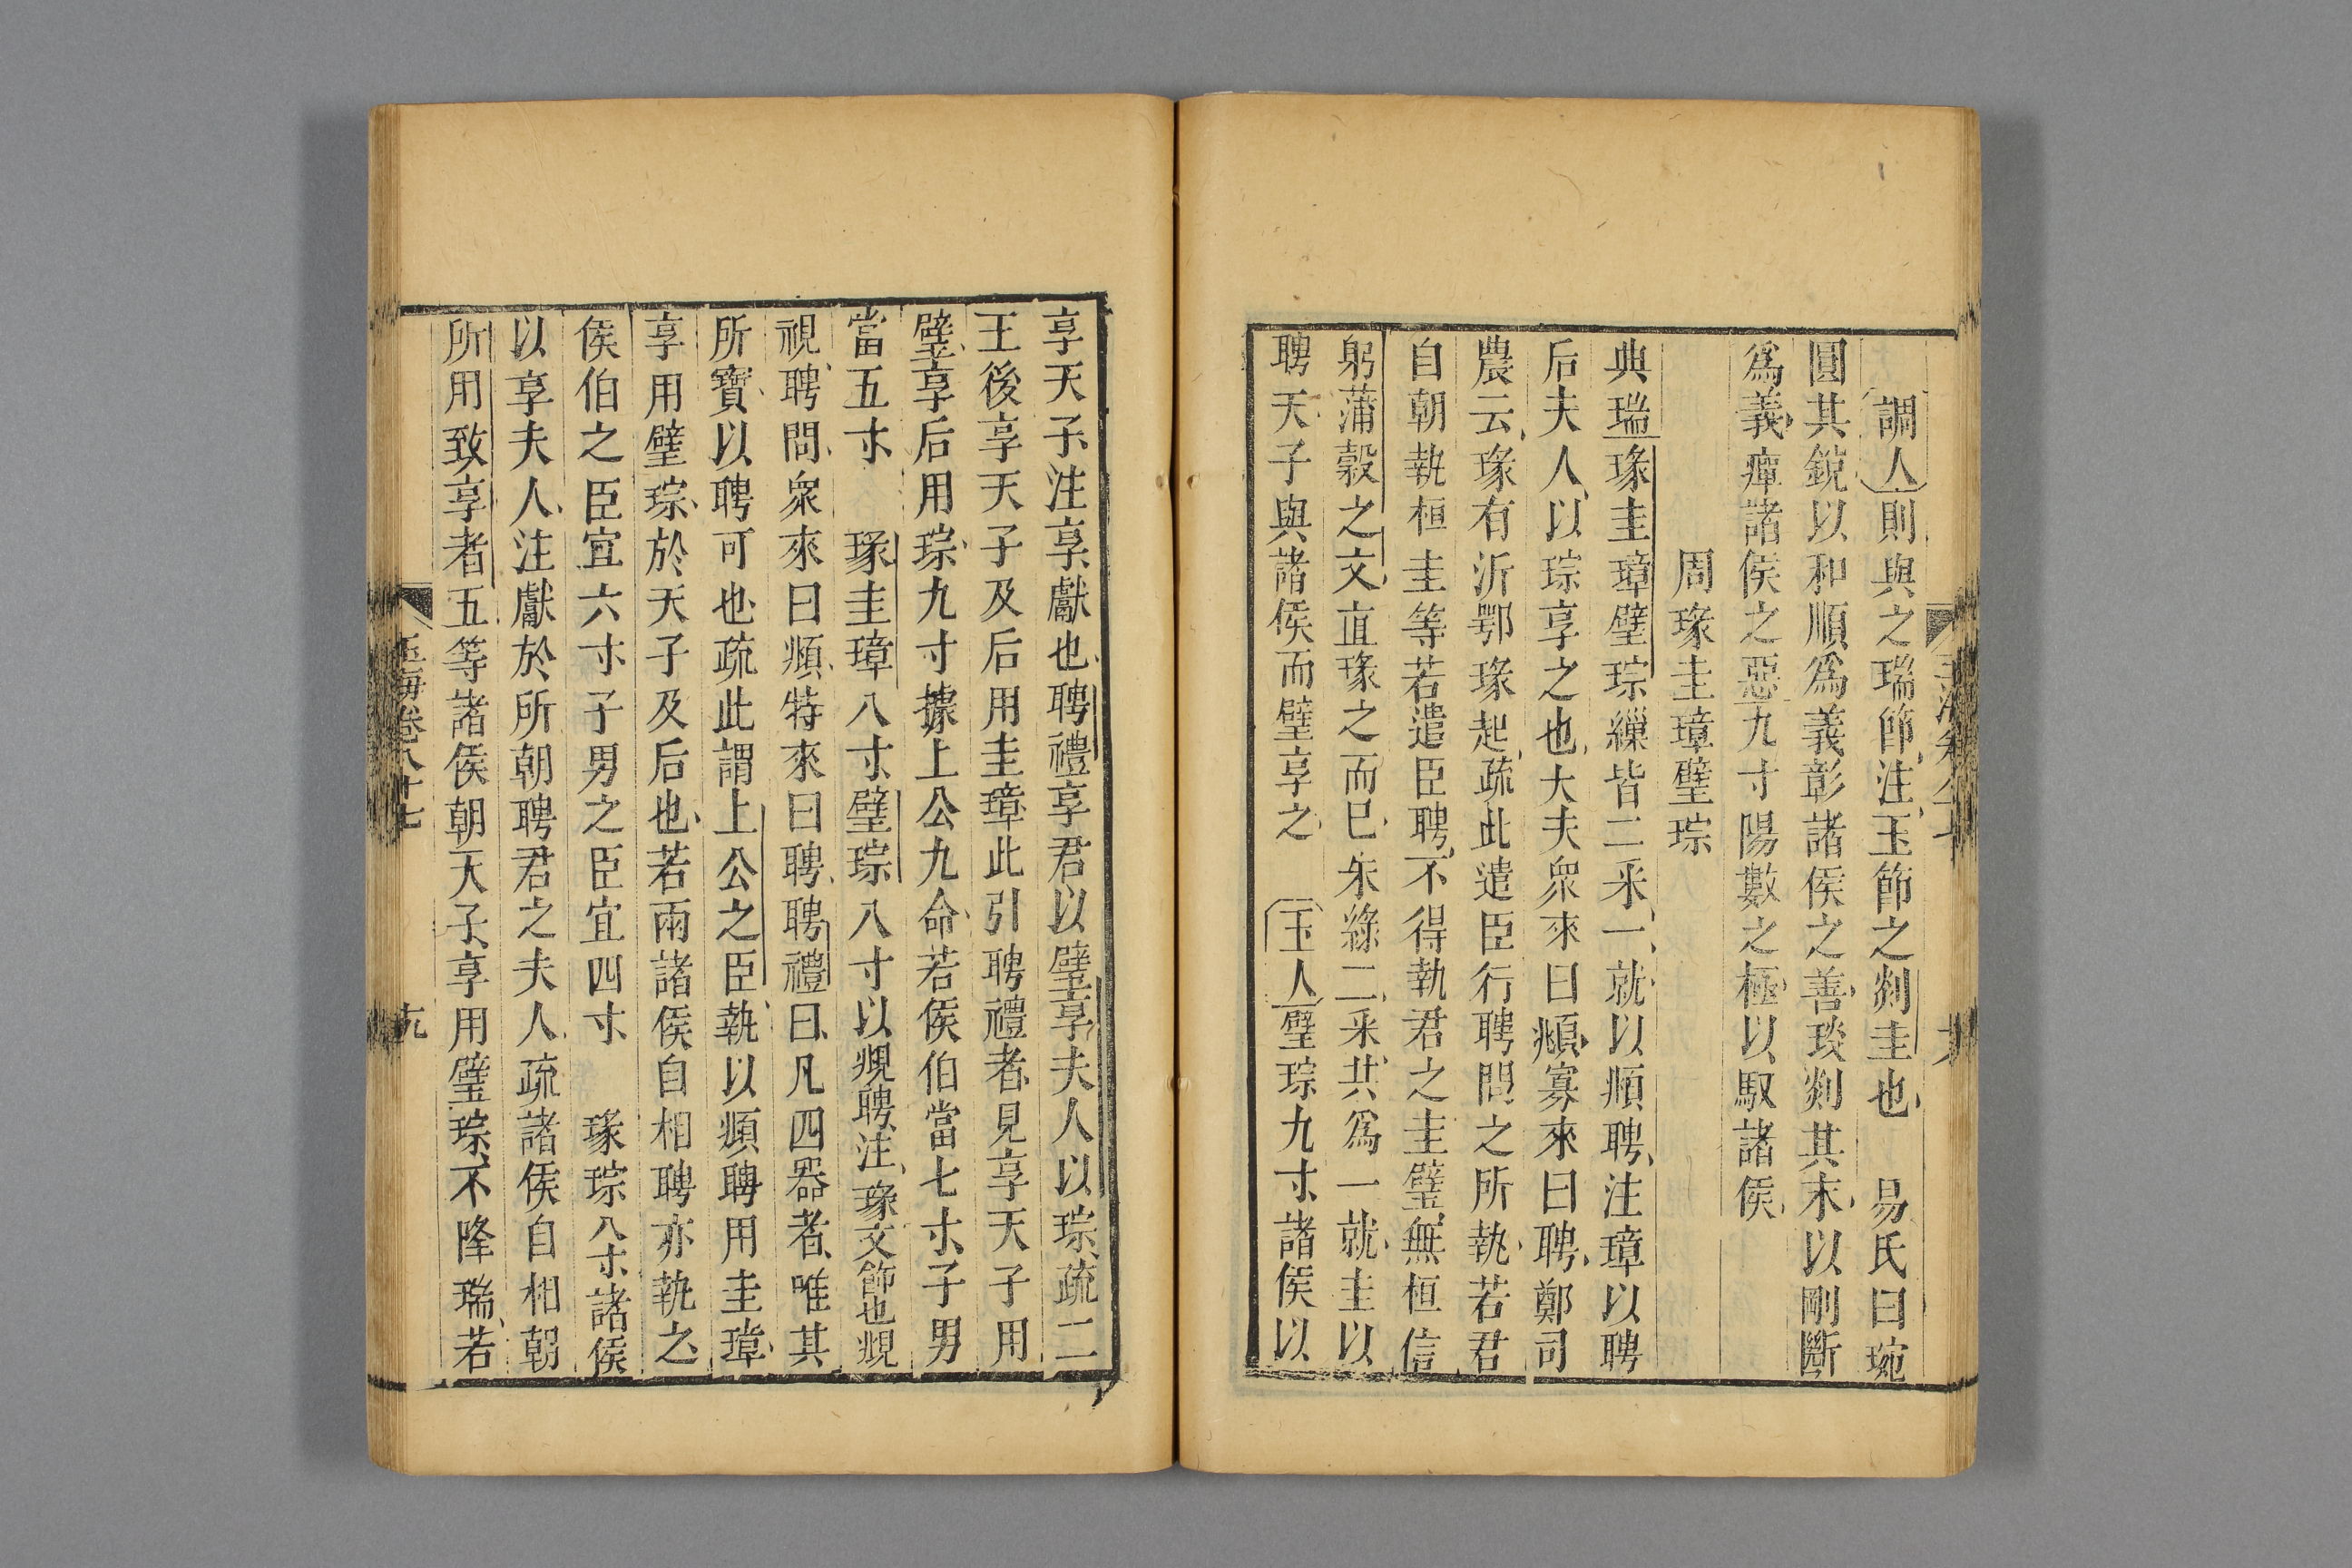 調人則與之瑞節注玉節之剡圭也　易氏曰琬
圓其銳以和順爲義彰諸侯之善琰剡其末以剛斷
爲義瘅諸侯之惡九寸陽數之極以馭諸侯
周瑑圭璋璧琮
典瑞瑑圭璋璧琮繅皆二采一就以頫聘注璋以聘
后夫人以琮享之也大夫衆來曰頫寡來曰聘鄭司
農云瑑有沂鄂瑑起疏此遣臣行聘問之所執若君
自朝執桓圭等若遣臣聘不得執君之圭璧無桓信
躬蒲穀之文直瑑之而巳朱綠二采共爲一就圭以
聘天子與諸侯而璧享之　玉人璧琮九寸諸侯以
享天子注享獻也聘禮享君以璧享夫人以琮疏二
王後享天子及后用圭璋此引聘禮者見享天子用
璧享后用琮九寸據上公九命若侯伯當七寸子男
當五寸　瑑圭璋八寸璧琮八寸以覜聘注瑑文飾也覜
視聘問衆來曰頫特來曰聘聘禮曰凡四器者唯其
所寶以聘可也疏此謂上公之臣執以頫聘用圭璋
享用璧琮於天子及后也若兩諸侯自相聘亦執之
侯伯之臣宜六寸子男之臣宜四寸　瑑琮八寸諸侯
以享夫人注獻於所朝聘君之夫人疏諸侯自相朝
所用致享者五等諸侯朝天子享用璧琮不降瑞若
玉海卷八十七